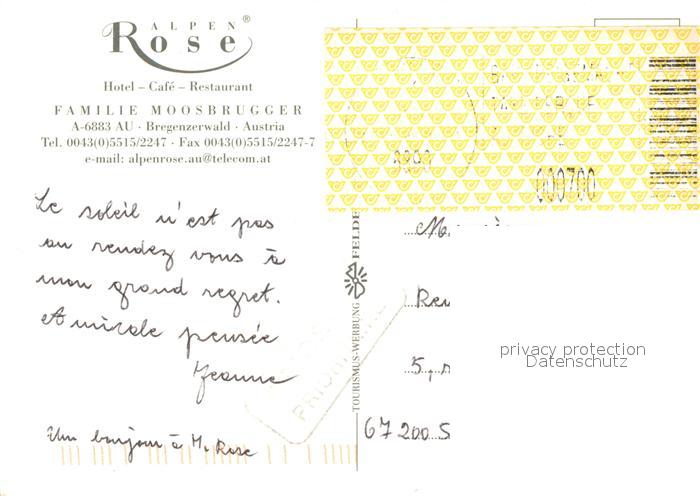 ALPEN®
Rose
Hotel – Café – Restaurant
FAMILIE MOOSBRUGGER
A-6883 AU · Bregenzerwald · Austria
Tel. 0043(0)5515/2247 · Fax 0043(0)5515/2247-7
e-mail: alpenrose.au@telecom.at
Le soleil n'est pas
au rendez vous à
mon grand regret.
Amicale pensée
Jeanne
Un bonjour à M. Rose
TOURISMUS-WERBUNG FELDE
PRIORITAIRE
000700
M.
Ren
5,
67200 S
privacy protection
Datenschutz